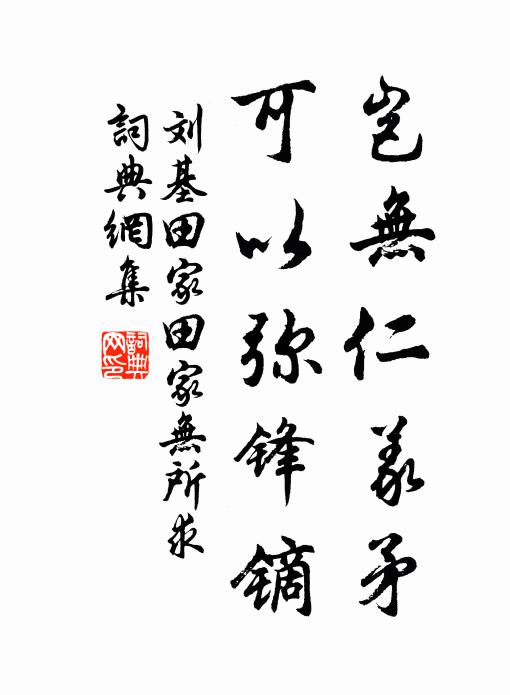 岂無仁義矛
可以弥锋镝
刘基田家田家無所求
詞典網集
詞典网印